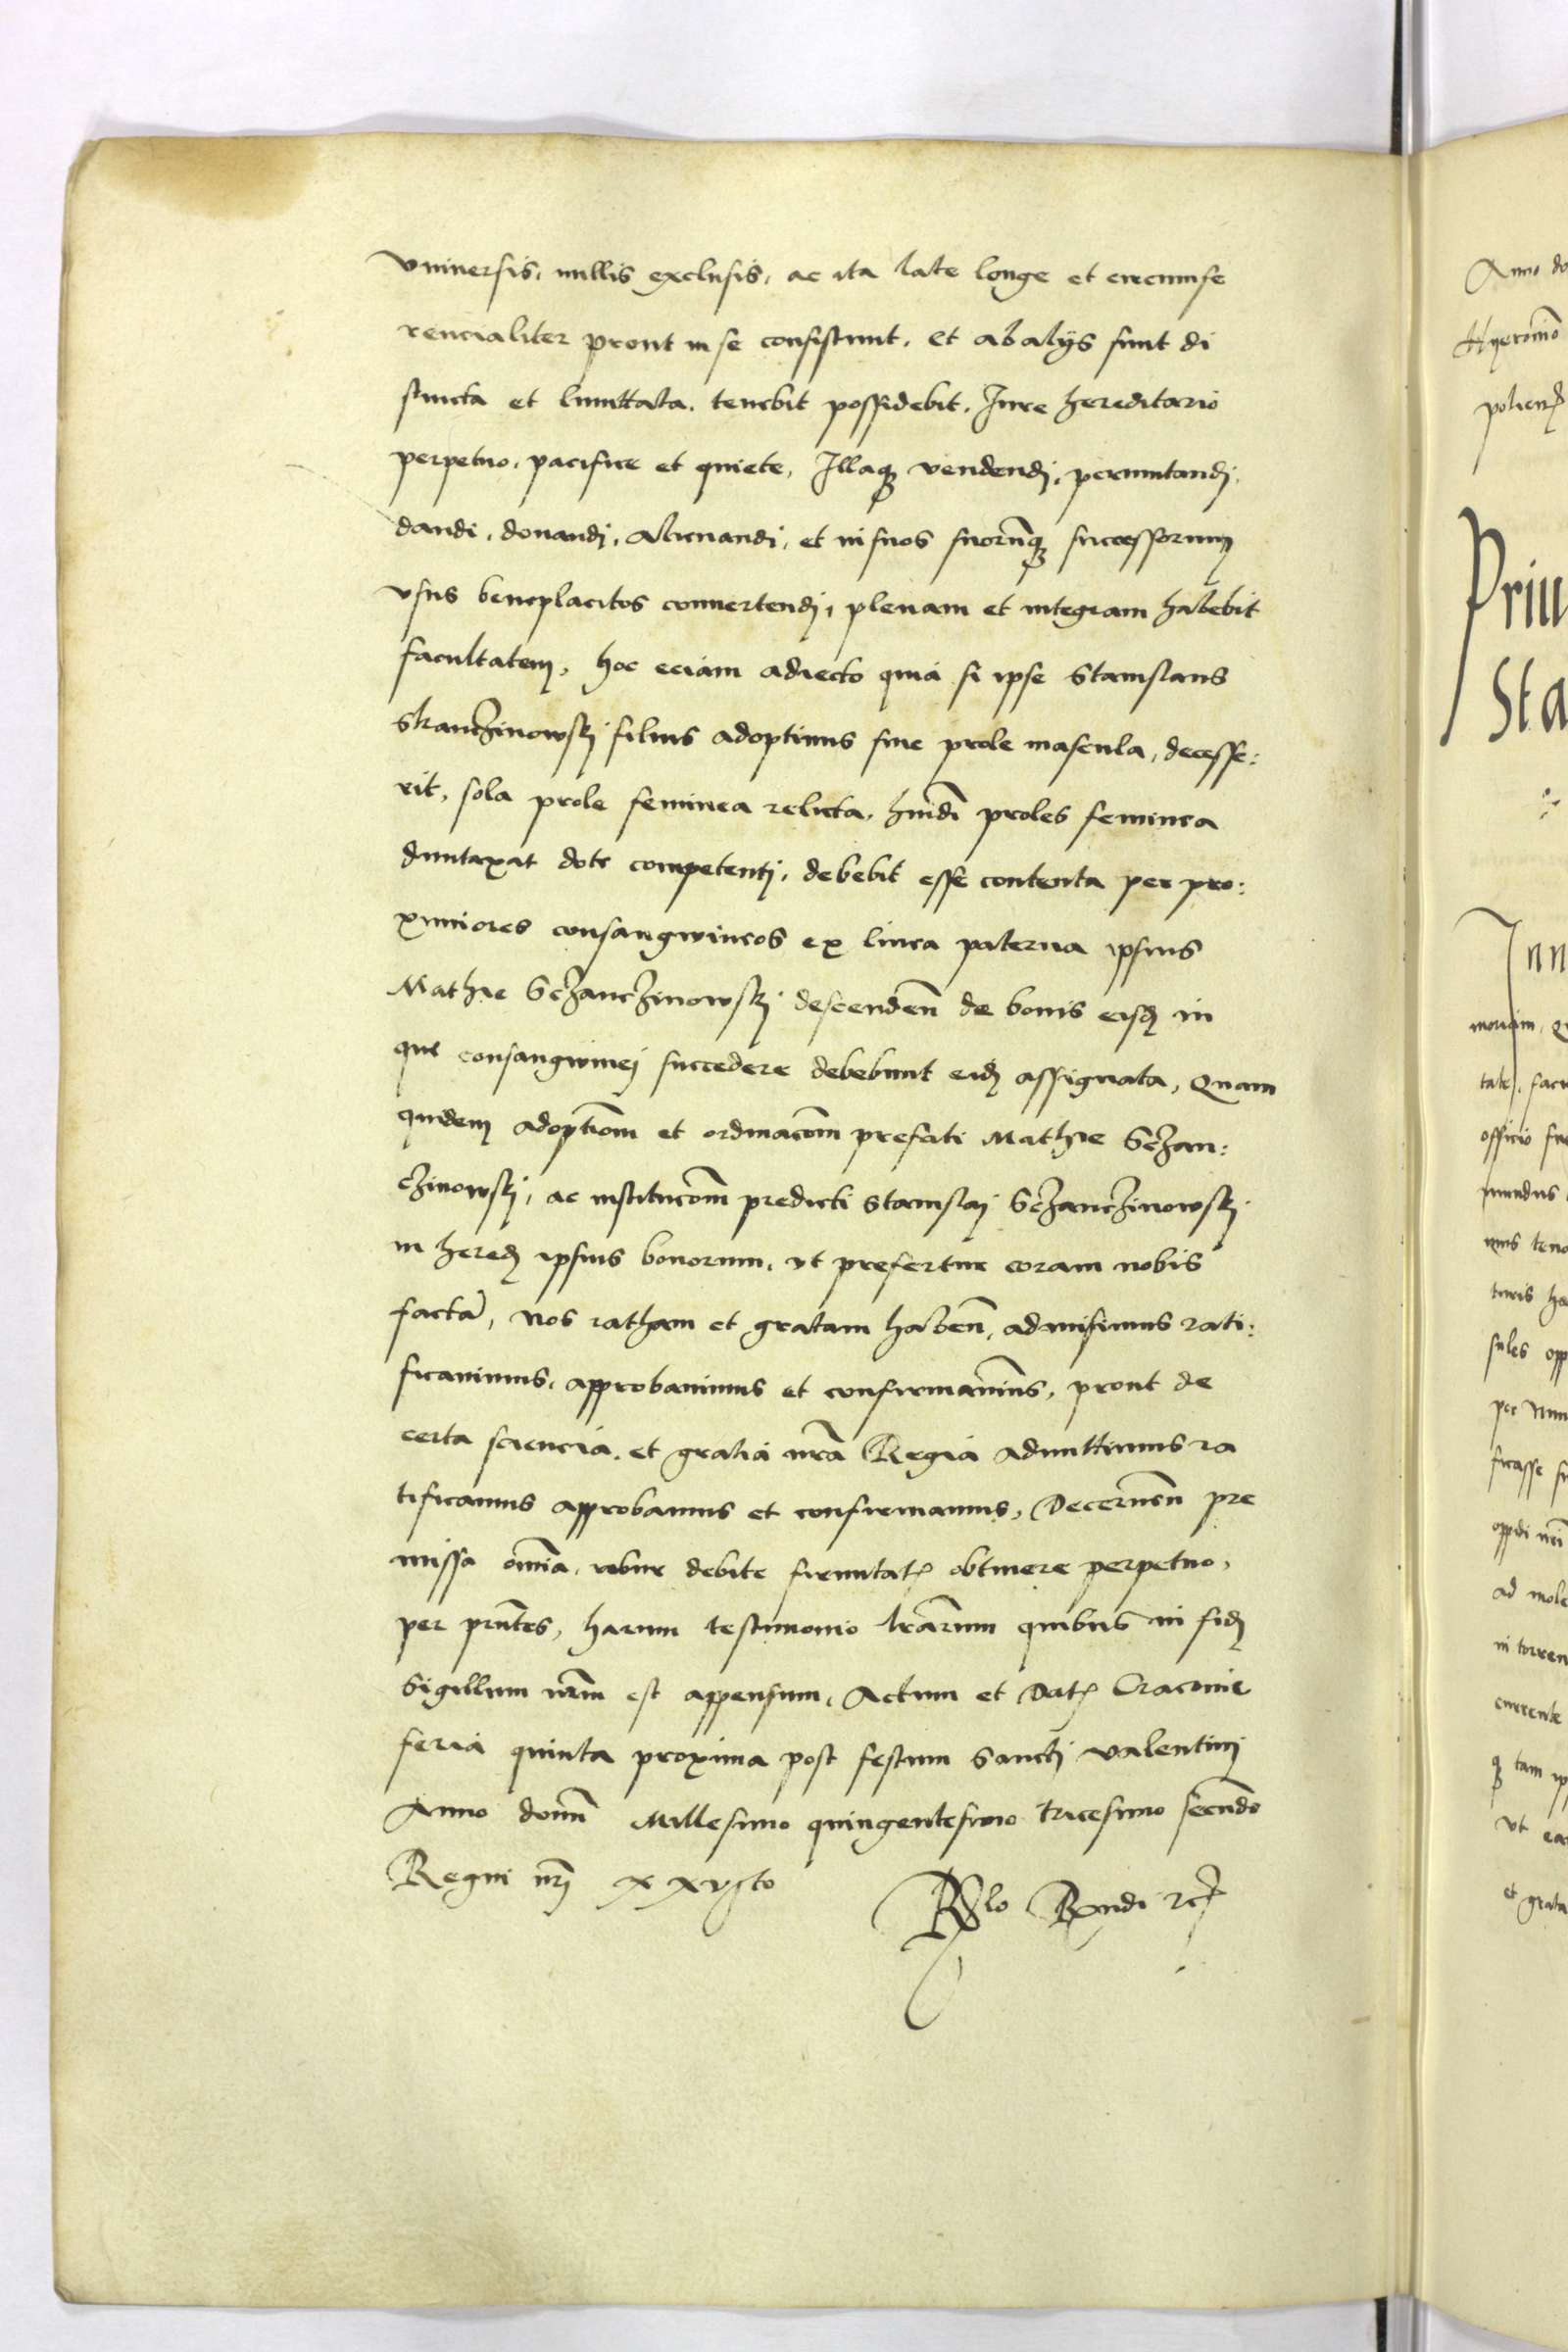 vniuersis, nullis exclusis, ac ita late longe et circumfe
rencialiter prout in se consistunt, et ab alÿs sunt di
stincta et limittata, tenebit possidebit, Iure hereditario
perpetuo, pacifice et quiete, Illaqz vendendj, permutandj,
dandi, donandj, alienandi, et in suos suorūqz successorum
vsus beneplacitos conuertendj, plenam et integram habebit
facultatem, hoc eciam adiecto quia si ipse Stanislaus
Skanczinowskj filius adoptiuus sine prole mascula, decesse:
rit, sola prole feminea relicta, huiōdi proles feminea
duntaxat dote competentj, debebit esse contenta per pro:
ximiores consangwineos ex linea paterna ipsius
Mathie Sczanczinowskj descendeñ de bonis eisdẽ in
que consangwinej succedere debebunt eidẽ assignata, Quam
quidem adoptiom̄ et ordinacom̄ prefati Mathie Sczan:
czinowskj, ac institucom̄ predicti Stanislaj Sczanczinowskj
in heredẽ ipsius bonorum, vt prefertur coram nobis
factā, nos ratham et gratam habeñ, admisimus rati:
ficauimus, approbauimus et confirmauimus, prout de
certa sciencia, et gratia nr̄a Regia admittimus ra
tificamus approbamus et confirmamus, Decerneñ pre
missa om̄ia, robur debite firmitatꝭ obtinere perpetuo,
per pn̄tes, harum testimonio lr̄arum quibus in fidẽ
Sigillum nr̄m est appensum, Actum et Datꝭ Cracouie
feria quinta proxima post festum Sanctj Valentinj
Anno domī Millesimo quingentesimo tricesimo secundo
Regni nr̄j xxvjto
Anno do
Hyeronimo
Priu
Sta
Inn
moriam, Q
officio
mundus
nus teno
turis ha
sules opp
per
ficasse
oppidi nr̄i
ad mole
in torren
currente
qz tam ip
vt ea
et grata